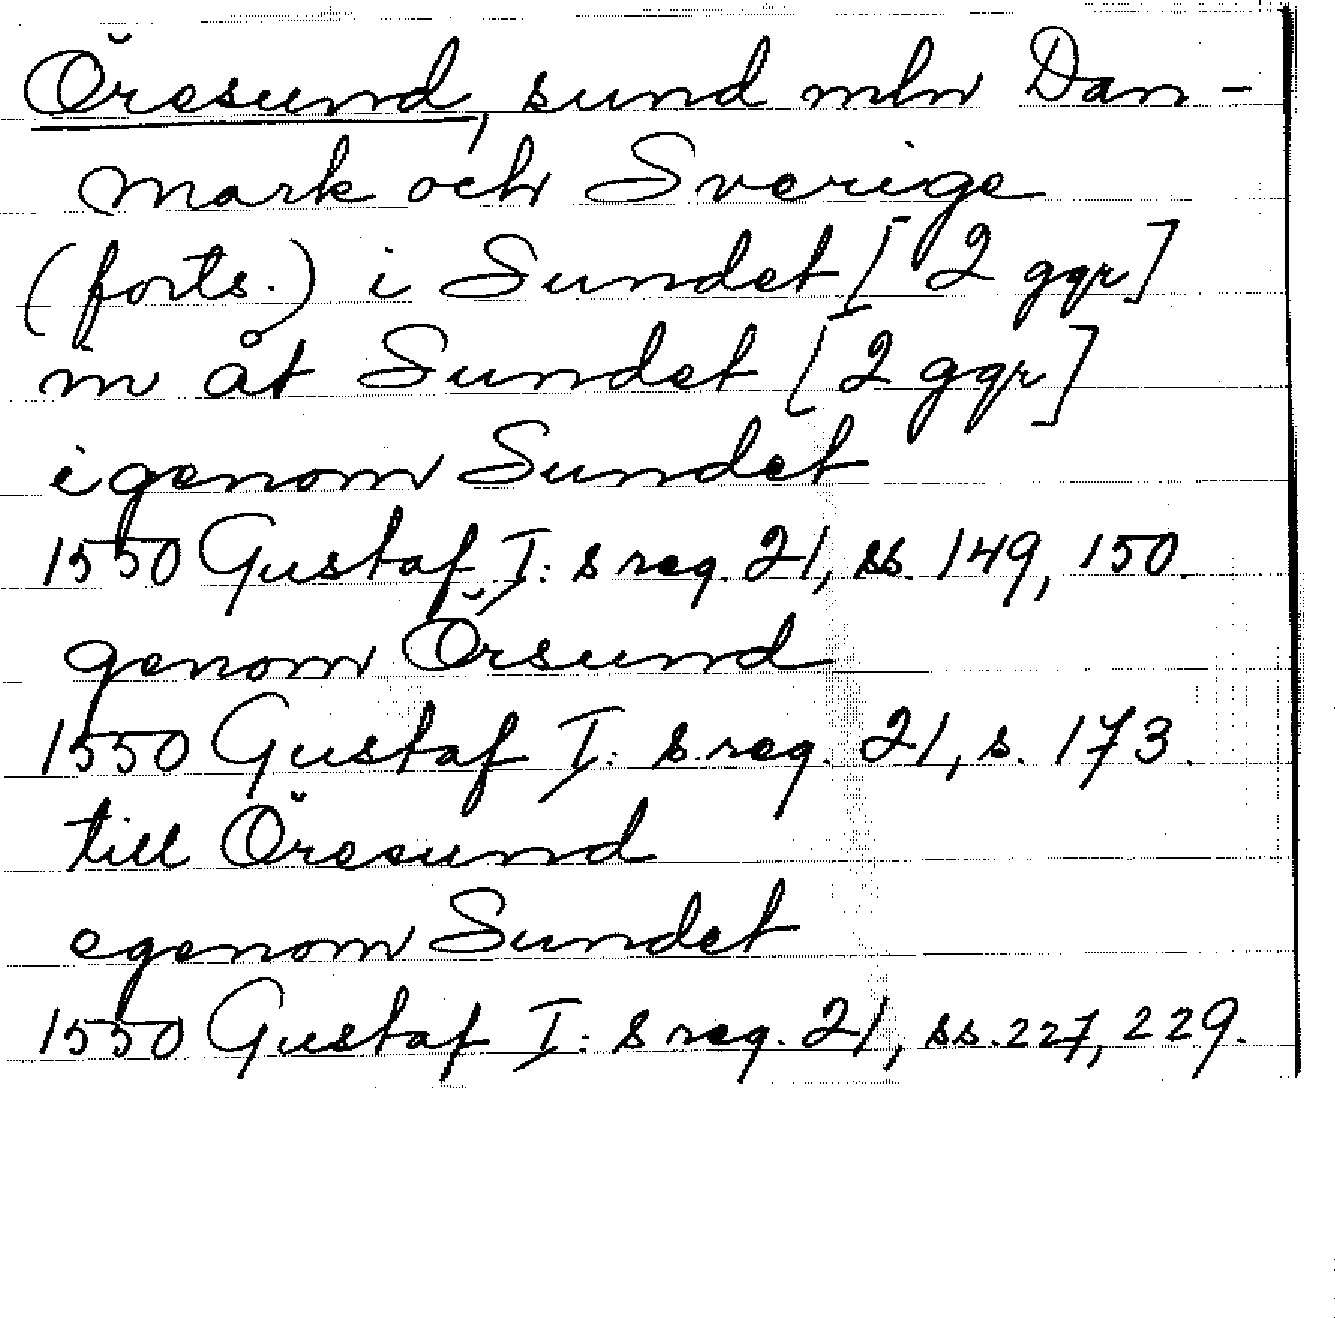 Öresund, sund mln Dan-
mark och Sverige
(forts.) i Sundet [2 ggr]
in åt Sundet [2 ggr]
igenom Sundet
1550 Gustaf I: s reg. 21, ss. 149, 150.
genom Örsund
1550 Gustaf I: s reg. 21, s. 173.
till Öresund
egenom Sundet
1550 Gustaf I: s reg. 21, ss. 227, 229.